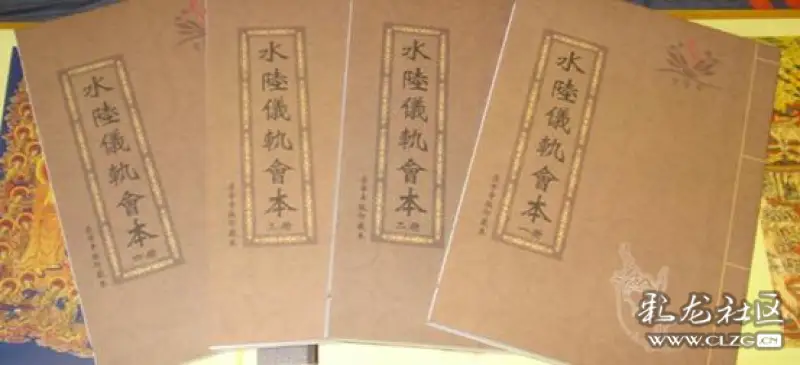 水陸儀軌會本
四册
水陸儀軌會本
三册
水陸儀軌會本
二册
水陸儀軌會本
一册
彩龙社区
WWW.CLZG.CN